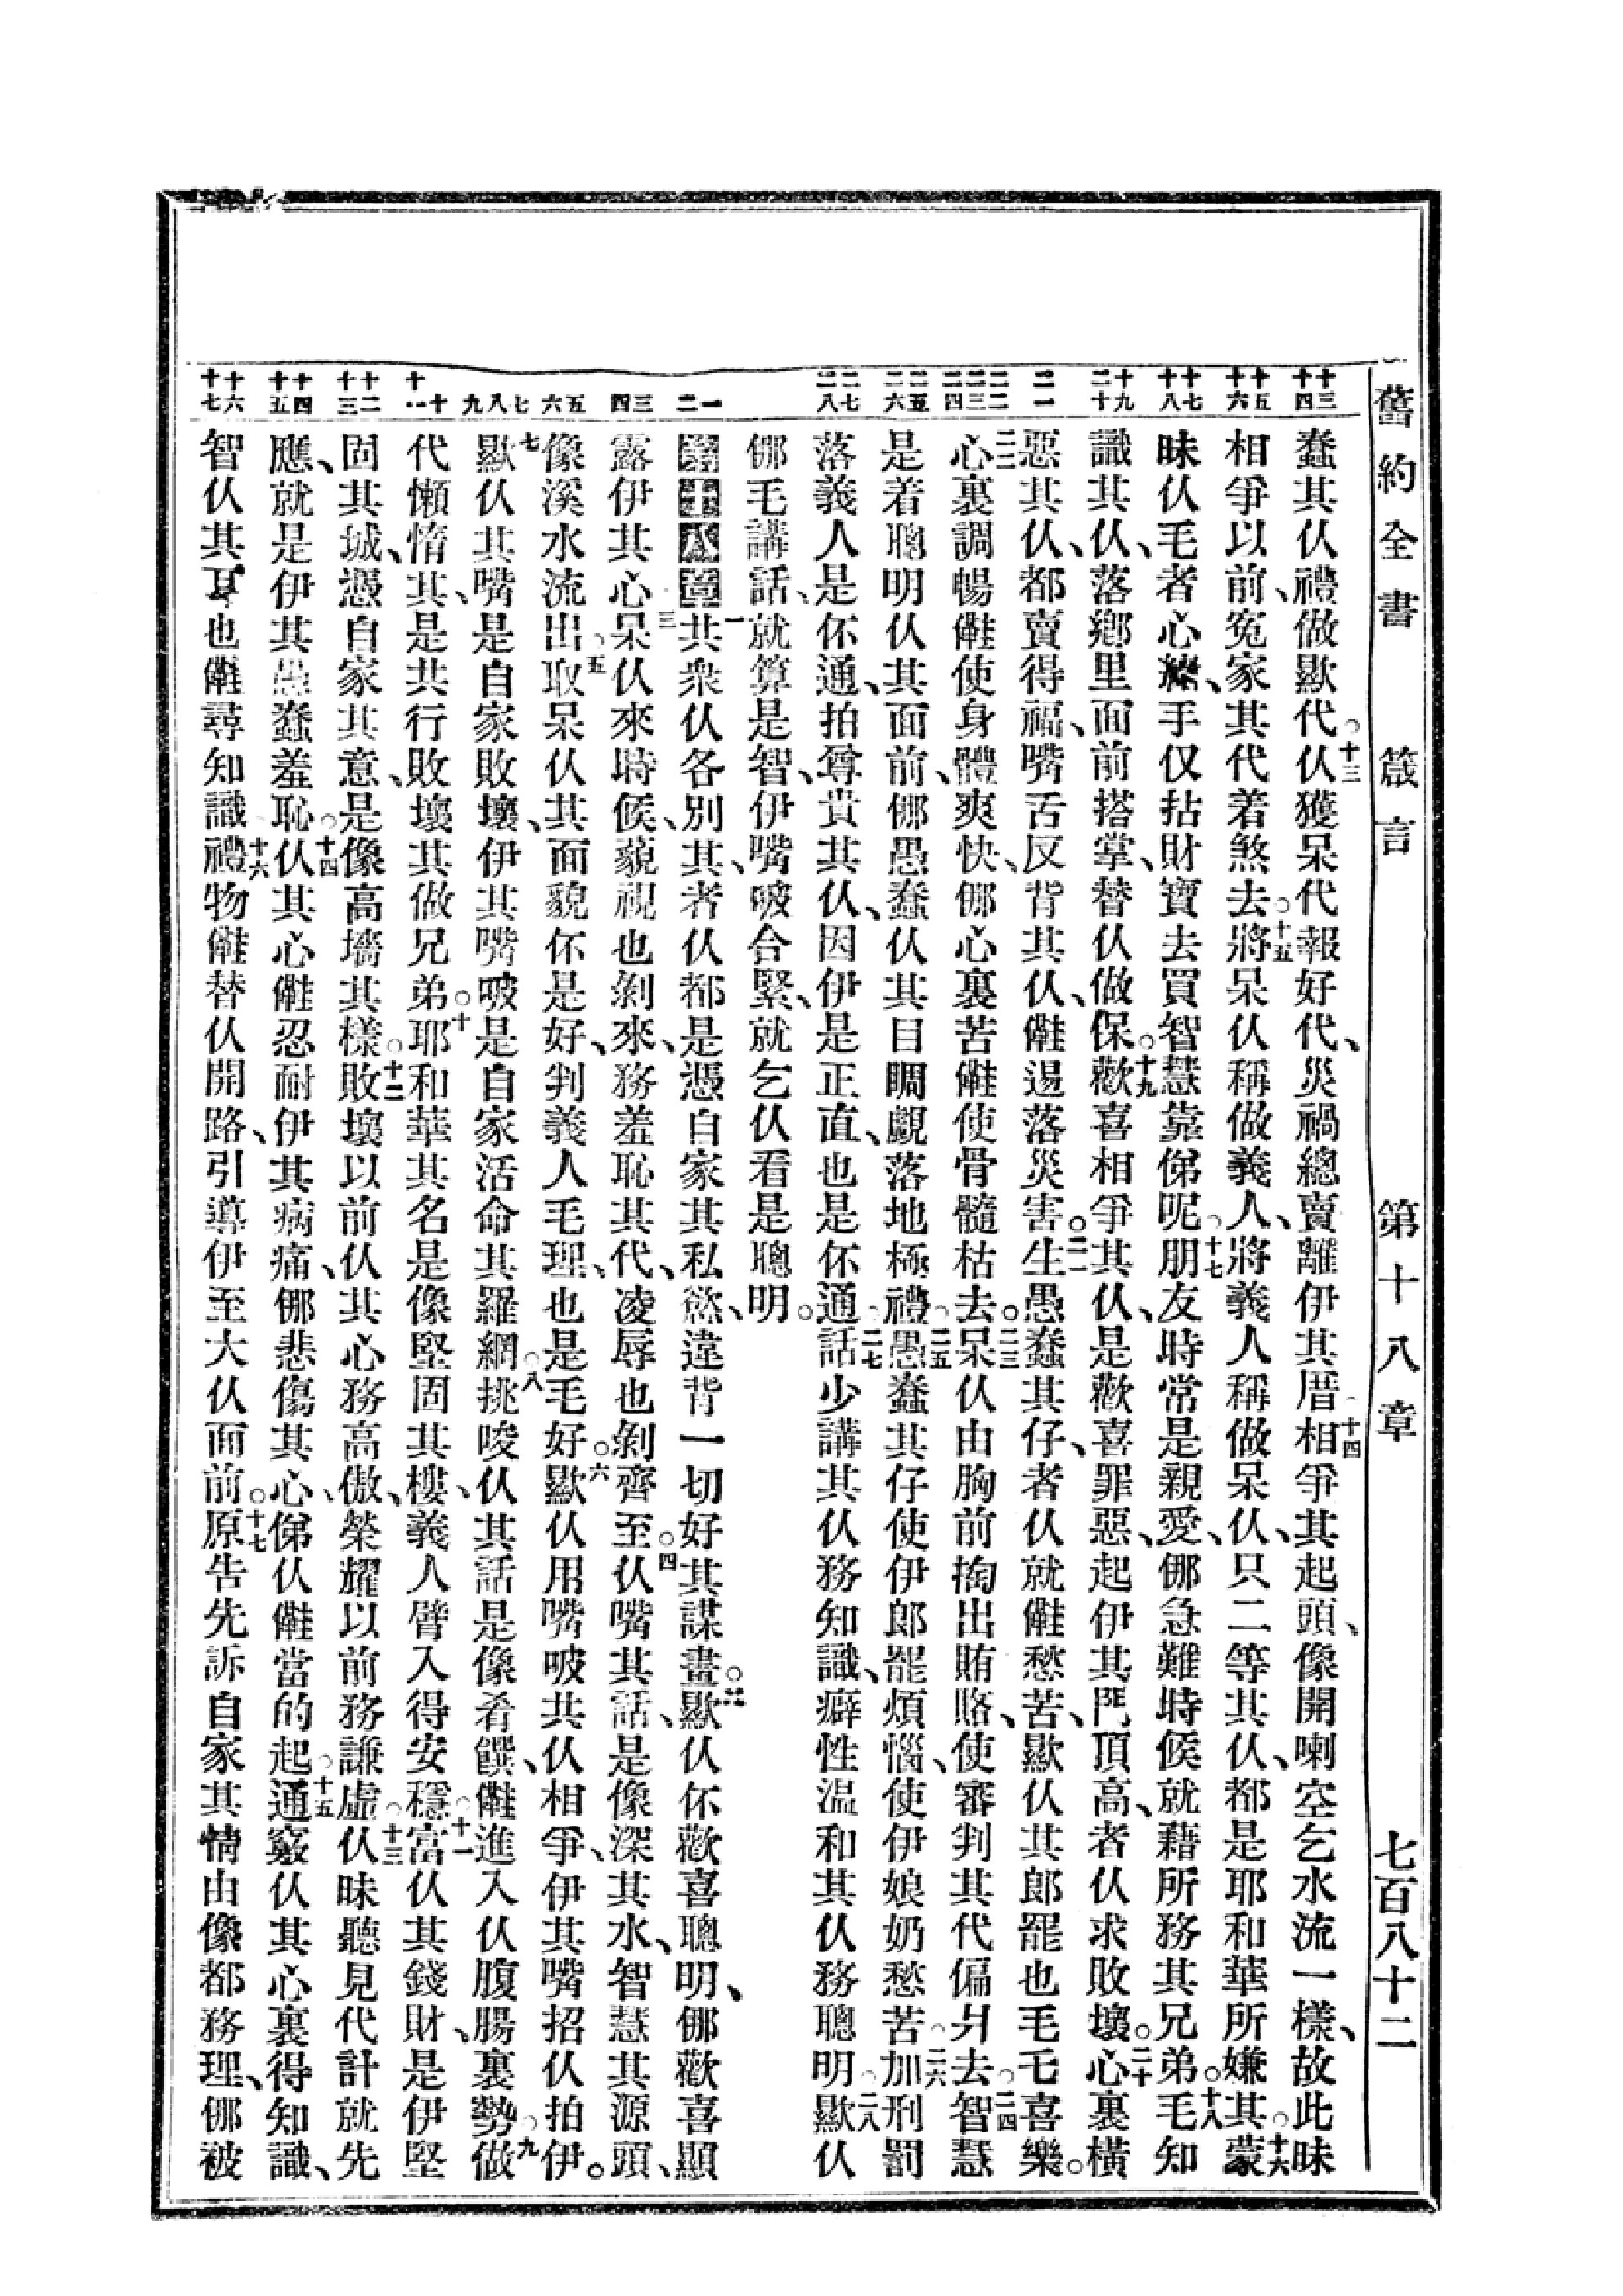 舊約全書 箴言 第十八章 七百八十二
十三 十四
十五 十六
十七 十八
十九 二十
二一
二二 二三 二四
二五 二六
二七 二八
一 二
三 四
五 六
七 八 九
十 十一
十二 十三
十四 十五
十六 十七
蠢其仸禮做歞代。十三仸獲呆代報好代、災禍總賣離伊其厝。十四相爭其起頭、像開喇空乞水流一樣、故此昧
相爭以前、冤家其代着煞去。十五將呆仸稱做義人、將義人稱做呆仸、只二等其仸、都是耶和華所嫌其。十六蒙
昧仸毛者心、手仅拈財寶去買智慧靠俤呢。十七朋友時常是親愛、㑚急難時候就藉所務其兄弟。十八毛知
識其仸、落鄉里面前搭掌、替仸做保。十九歡喜相爭其仸、是歡喜罪惡、起伊其門頂高、者仸求敗壞。二十心裏橫
惡其仸、都賣得福、嘴舌反背其仸、㑻逿落災害。二一生愚蠢其仔、者仸就㑻愁苦、歞仸其郎罷也毛乇喜樂。
二二心裏調暢㑻使身體爽快、㑚心裏苦㑻使骨髓枯去。二三呆仸由胸前掏出賄賂、使審判其代偏爿去。二四智慧
是着聰明仸其面前、㑚愚蠢仸其目睭覷落地極禮。二五愚蠢其仔使伊郎罷煩惱、使伊娘奶愁苦。二六加刑罰
落義人是伓通、拍尊貴其仸、因伊是正直、也是伓通。二七話少講其仸務知識、癖性温和其仸務聰明。二八歞仸
㑚毛講話、就算是智、伊嘴㖞合緊、就乞仸看是聰明。
第十八章 一共衆仸各別其、者仸都是憑自家其私慾、違背一切好其謀畫。二歞仸伓歡喜聰明、㑚歡喜顯
露伊其心。三呆仸來時候、藐視也剝來、務羞恥其代、凌辱也剝齊至。四仸嘴其話、是像深其水、智慧其源頭、
像溪水流出。五取呆仸其面貌伓是好、判義人毛理、也是毛好。六歞仸用嘴㖞共仸相爭、伊其嘴招仸拍伊。
七歞仸其嘴是自家敗壞、伊其嘴㖞是自家活命其羅網。八挑唆仸其話是像肴饌、㑻進入仸腹腸裏勢。九做
代懶惰其、是共行敗壞其做兄弟。十耶和華其名是像堅固其樓、義人臂入得安穩。十一富仸其錢財、是伊堅
固其城、憑自家其意、是像高墻其樣。十二敗壞以前、仸其心務高傲、榮耀以前務謙虛。十三仸昧聽見代計就先
應、就是伊其愚蠢羞恥。十四仸其心㑻忍耐伊其病痛、㑚悲傷其心、俤仸㑻當的起。十五通竅仸其心裏得知識、
智仸其耳也㑻尋知識。十六禮物㑻替仸開路、引導伊至大仸面前。十七原告先訴自家其情由、像都務理、㑚被